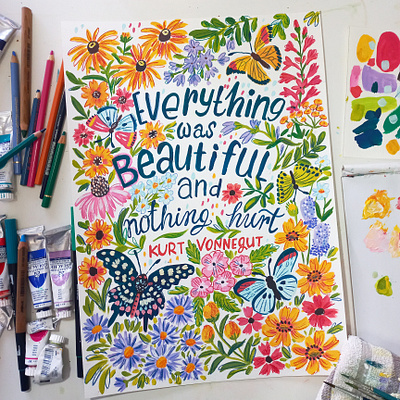 Everything
was
Beautiful
and
nothing hurt
KURT VONNEGUT